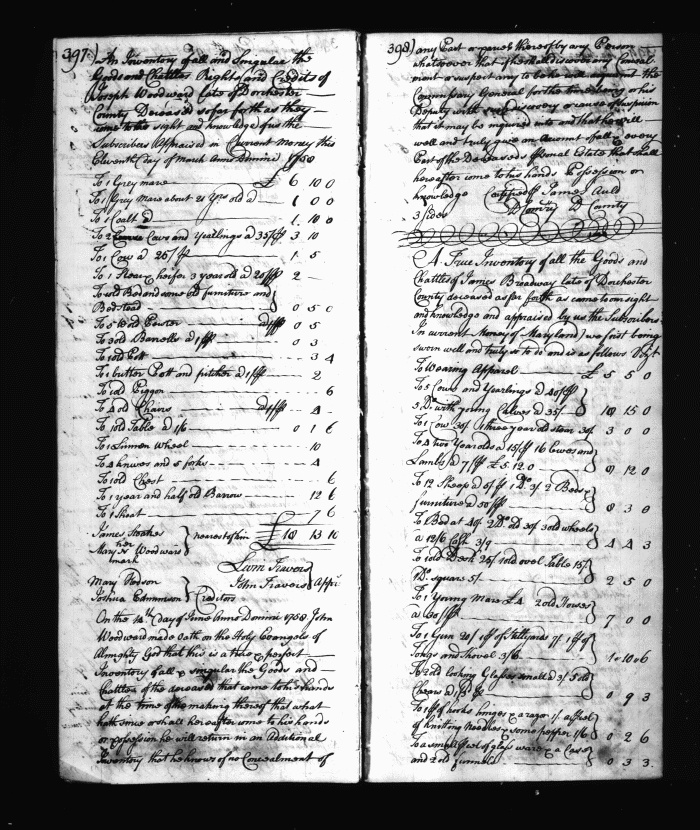 397.)
An Inventory of all and Singular the
Goods and Chattles Rights and Credits of
Joseph Woodward late of Dorchester
County Deceased so far forth as they
come to the sight and knowledge of us the
Subscribers Appraised in Current Money this
Eleventh Day of March Anno Domini 1758
To 1 Grey mare £ 6 10 0
To 1 Grey Mare about 21 Yrs old a 1 0 0
To 1 Coalt a 1 10 0
To 2 Cows and Yearlings a 35/ 3 10
To 1 Cow a 25/ 1 5
To 1 heifer 3 year old a 2 -
To old Bed and some old furniture and
Bedstead 0 5 0
To 5 old Pewter 0 5
To 3 old Barrells a 1/ 0 3
To 1 old Pott 3 4
To 1 butter Pott and pitcher a 1/ 2
To 1 old Piggon 6
To 4 old Chairs a 1/ 4 -
To 1 old Table a 1/6 0 1 6
To 1 Linnen Wheel 10
To 4 knives and 5 forks 4
To 1 old Chest 6
To 1 year and half old Barrow 12 6
To 1 Sheat 7 6
James nearest of kin £ 18 13 10
Mary her Woodward
mark
Levin Travers
John Travers Appr
Mary
Joshua Edmonson Creditors
On the 14th Day of June Anno Domini 1758 John
Woodward made Oath on the Holy Evangels of
Almighty God that this is a true & perfect
Inventory of all & singular the Goods and
Chattles of the deceased that came to his hands
at the time of the making thereof that what
hath since or shall hereafter come to his hands
or possession he will return in an additional
Inventory that he knows of no Concealment of
398)
any Part or parcel thereof by any Person
whatsoever that if he shall discover any Conceal
ment or suspect any to be he will acquaint the
Commissary General for the time being or his
Deputy with such discovery or cause of suspicion
that it may be inquired into and that he will
well and truly give an Account of all & every
Part of the Deceaseds personal Estate that shall
hereafter come to his hands Possession or
knowledge Certifyed pr James Auld
3 sides D Comry D County
A True Inventory of all the Goods and
Chattles of James Broadway late of Dorchester
County deceased as far forth as came to our sight
and knowledge and appraised by us the Subscribers
In current Money of Maryland we first being
sworn well and truly so to do and is as follows Vizt
To Wearing Apparel £ 5 5 0
To 5 Cows and Yearlings a 40/
5 Do with young Calves a 35/ 18 15 0
To 1 Cow 30/ 1 three year old steer 30/ 3 0 0
To 4 two Year olds a 15/ 16 Ewes and
Lambs a 7/ £5.12.0 8 12 0
To 12 Sheep a 5/ 1 Do 3/ 2 Beds
furniture a 50/ 8 3 0
To Bed at 40/ 2 Do old 30/ 3 old wheels
a 12/6 3/9 4 4 3
To 1 old Desk 25/ 1 old ovel Table 15/
Do square 5/ 2 5 0
To 1 Young Mare £4 2 old Horses
a 30/ 7 0 0
To 1 Gun 20/ 1 pr of Stillyards 7/ 1 pr of
Tongs and Shovel 3/6 1 10 6
To 2 old looking Glasses small a 3/ 5 old
Chears a 0 9 3
To 1 pr of hooks hinges & a razor 1/ a parcel
of knitting Needles & some pepper 1/6 0 2 6
To a small parcel of glass ware & a Case
and 2 old funnels 0 3 3